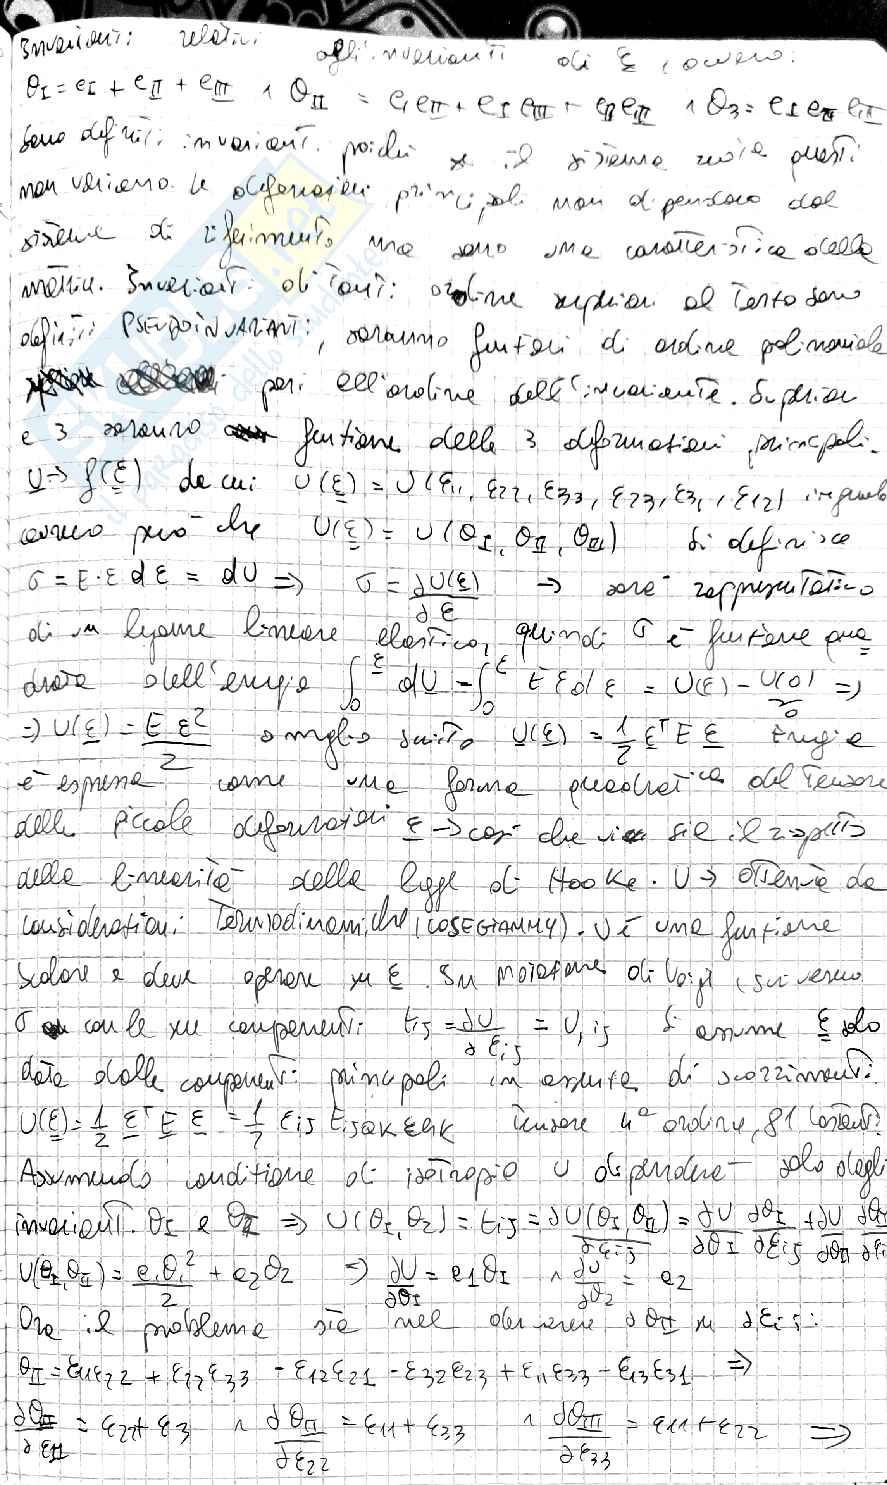 Invarianti relativi agli invarianti di ε, ovvero:
θI = eI + eII + eIII ∧ θII = eI eII + eI eIII + eII eIII ∧ θ3 = eI eII eIII
sono definiti invarianti poiché se il sistema ruota questi
non variano. le deformazioni principali non dipendono dal
sistema di riferimento ma sono una caratteristica della
matrice. Invarianti di ordine superiori al terzo sono
definiti PSEUDOINVARIANTI, saranno funzioni di ordine polinomiale
pari all'ordine dell'invariante. Superiori
a 3 saranno funzione delle 3 deformazioni principali.
U → f(ε) da cui U(ε) = U(ε11, ε22, ε33, ε23, ε31, ε12)
però che U(ε) = U(θI, θII, θIII) Si definisce
σ = E·ε dε = dU ⇒ σ = ∂U(ε)/∂ε → sarà rappresentativo
di un legame lineare elastico, quindi σ è funzione qua
drata dell'energia ∫0^ε dU = ∫0^ε E ε dε = U(ε) - U(0) ⇒
⇒ U(ε) = E ε²/2 o meglio scritto U(ε) = 1/2 ε^T E ε Energia
è espressa come una forma quadratica del tensore
delle piccole deformazioni ε → così che vi sia il rispetto
della linearità della legge di Hooke. U → ottenuta da
considerazioni termodinamiche (COSEGIAMMY). U è una funzione
scalare e deve operare su ε. In notazione di Voigt
σ con le sue componenti tij = ∂U/∂εij = U,ij Si assume ε solo
data dalle componenti principali in assenza di scorrimenti.
U(ε) = 1/2 ε^T E ε = 1/2 εij Eijhk εhk tensore 4° ordine, 81 costanti
Assumendo condizione di isotropia U dipenderà solo dagli
invarianti θI e θII ⇒ U(θI, θ2) = tij = ∂U(θI, θII)/∂εij = ∂U/∂θI ∂θI/∂εij + ∂U/∂θII ∂θII/∂εij
U(θI, θII) = e1 θI²/2 + e2 θ2 ⇒ ∂U/∂θI = e1 θI ∧ ∂U/∂θ2 = e2
Ora il problema sta nel derivare ∂θII su ∂εij:
θII = ε11ε22 + ε22ε33 - ε12ε21 - ε32ε23 + ε11ε33 - ε13ε31 ⇒
∂θII/∂ε11 = ε22 + ε3 ∧ ∂θII/∂ε22 = ε11 + ε33 ∧ ∂θIII/∂ε33 = ε11 + ε22 ⇒